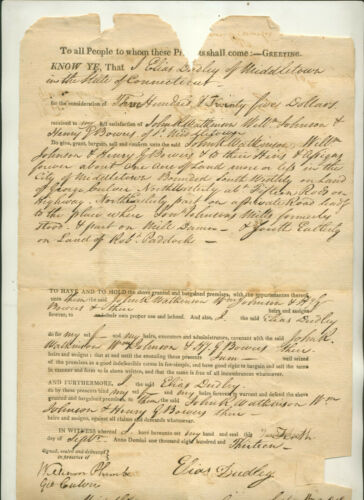 To all People to whom these Pr s shall come:—GREETING.
KNOW YE, That I Elias Dudley of Middletown
in the State of Connecticut
for the consideration of Three Hundred & Twenty five Dollars
received to my full satisfaction of John R Watkinson Willm Johnson &
Henry G Bowers of sd Middletown
Do give, grant, bargain, sell and confirm unto the said John R Watkinson, Willm
Johnson & Henry G Bowers & to their Heirs & Assigns
forever about One Acre of Land more or less in the
City of Middletown Bounded South Westerly on Land
of George Culver Northwesterly at Fifteen Rods on
Highway, Northeasterly part on a private Road leading
to the place where Johnsons Mills formerly
stood & part on Mill Damm — & South Easterly
on Land of Robt Paddock —
TO HAVE AND TO HOLD the above granted and bargained premises, with the appurtenances thereof,
unto them the said John R Watkinson Wm Johnson & H G
Bowers & their heirs and assigns
forever, to their own proper use and behoof. And also, I the said Elias Dudley
do for my self & my heirs, executors and administrators, covenant with the said John R
Watkinson Wm Johnson & H G Bowers their
heirs and assigns; that at and until the ensealing these presents I am well seized
of the premises as a good indefeasible estate in fee-simple, and have good right to bargain and sell the same
in manner and form as is above written, and that the same is free of all incumbrances whatsoever.
AND FURTHERMORE, I the said Elias Dudley
do by these presents bind my self & my heirs forever to warrant and defend the above
granted and bargained premises to them the said John R Watkinson Wm
Johnson & Henry G Bowers their heirs
and assigns, against all claims and demands whatsoever.
IN WITNESS whereof I have hereunto set my hand and seal this Tenth
day of Septr Anno Domini one thousand eight hundred and
Thirteen—
Signed, sealed and delivered
in presence of
William Plumbe
Geo Culver
Elias Dudley